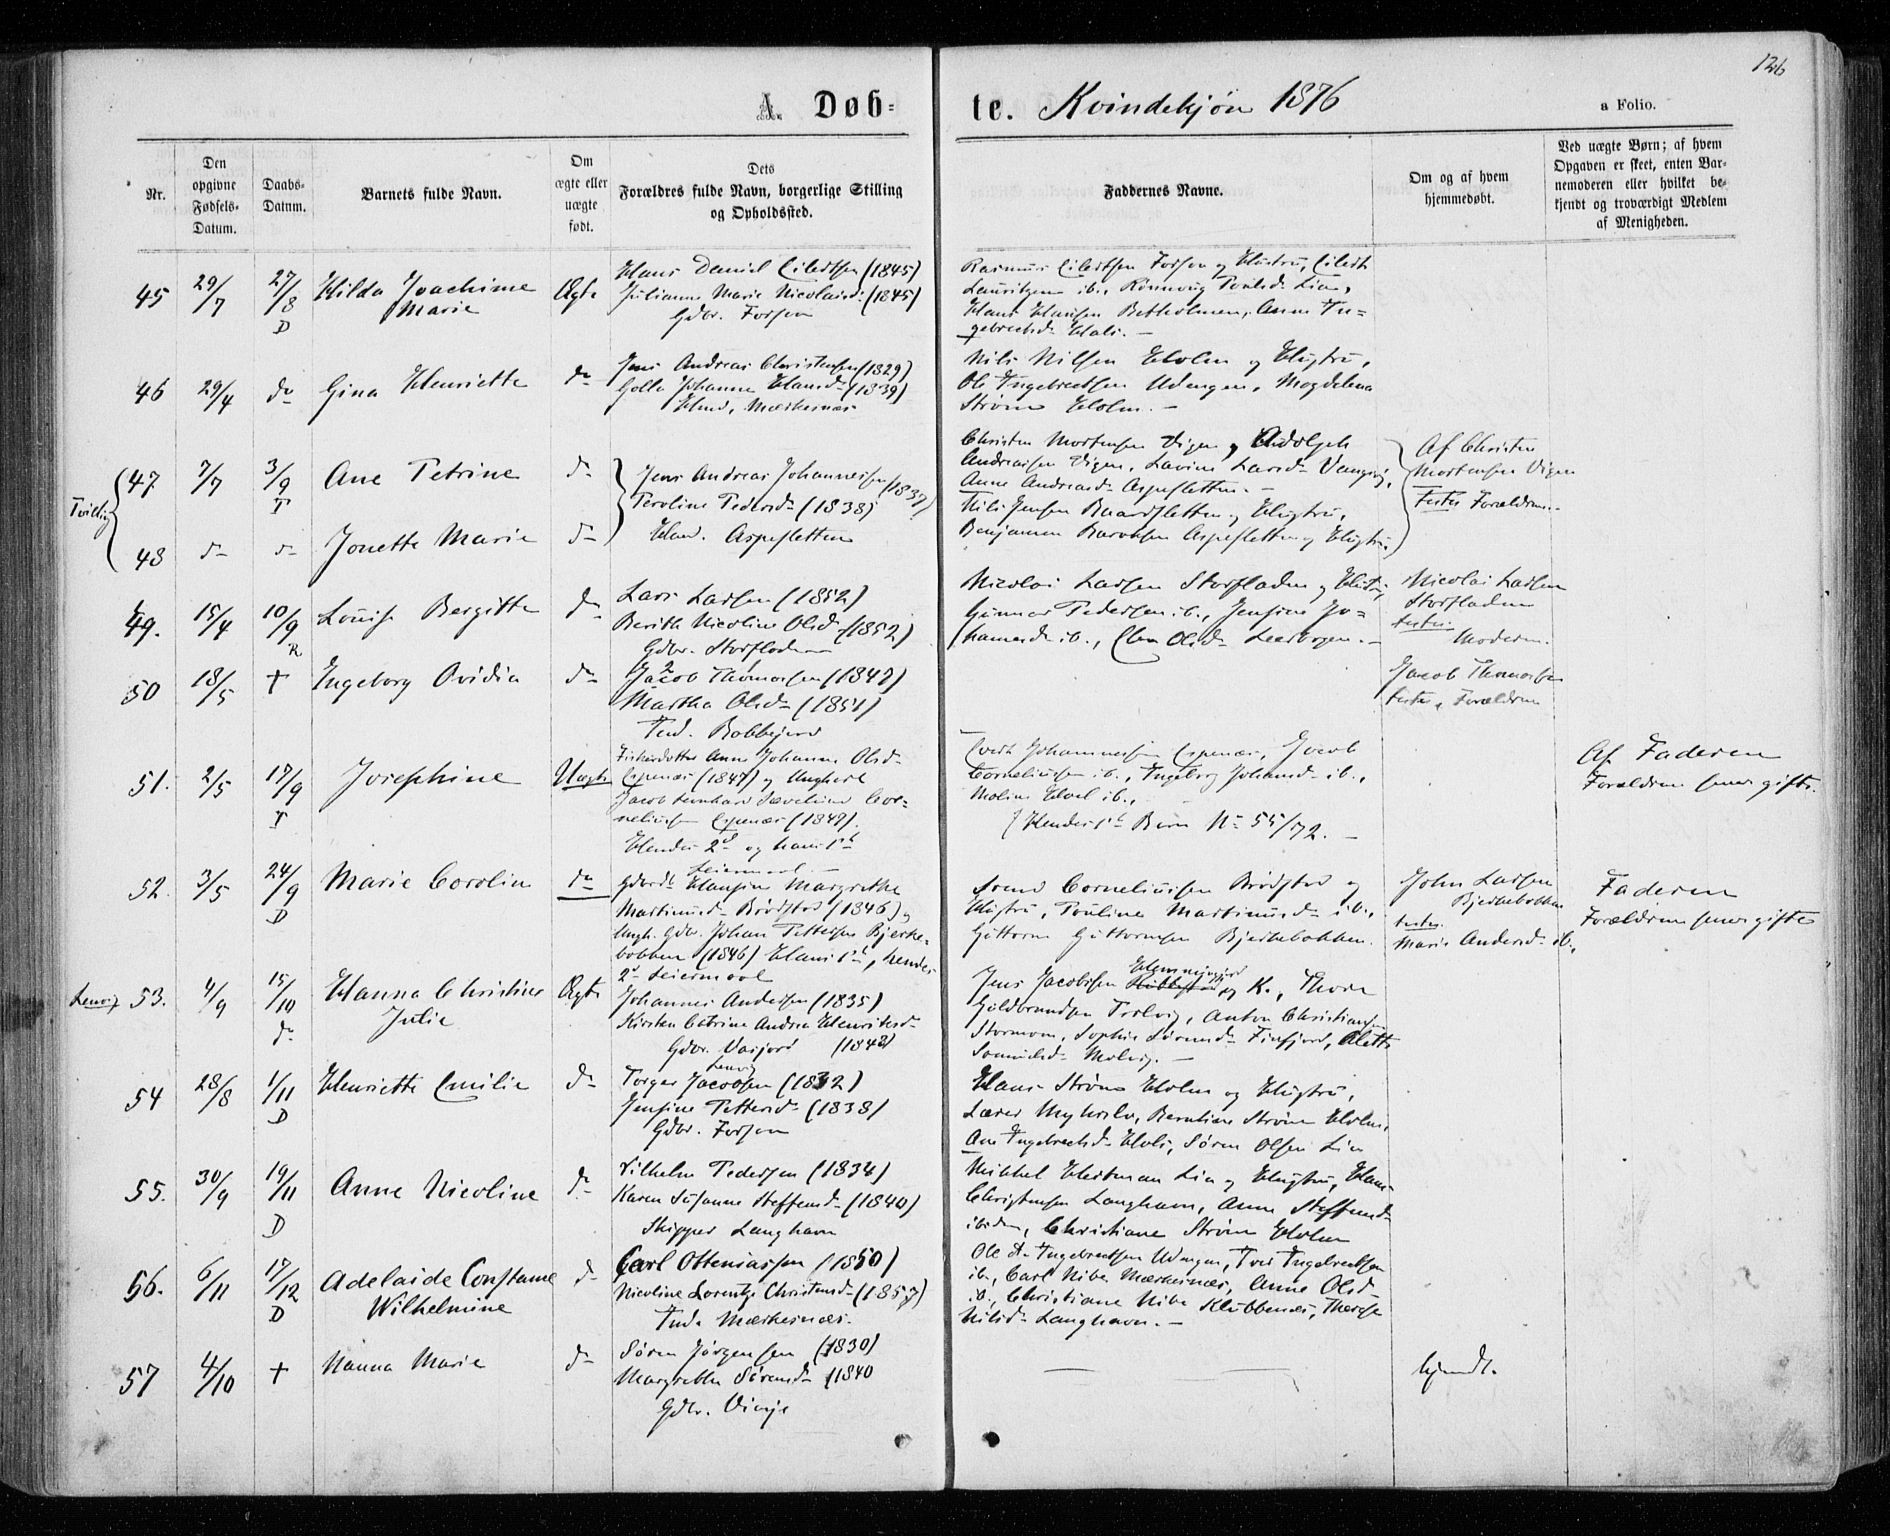 126
A. Døb-
te. Kvindekjøn 1876
a Folio.
Nr.
Den
opgivne
Fødsels-
Datum.
Daabs-
Datum.
Barnets fulde Navn.
Om
ægte eller
uægte
født.
Dets
Forældres fulde Navn, borgerlige Stilling
og Opholdssted.
Faddernes Navne.
Om og af hvem
hjemmedøbt.
Ved uægte Børn; af hvem
Opgaven er skeet, enten Bar-
nemoderen eller hvilket be-
kjendt og troværdigt Medlem
af Menigheden.
45 29/7 27/8 D
Hilda Joachime
Marie
Ægte
Hans Daniel Eilertsen (1845)
Julianne Marie Nicolaisd: (1845)
Gdbr. Forsøen
Rasmus Eilertsen Forsøen og Hustru, Eilert
Lauritzen ib., Rønnoug Poulsd: Lien,
Hans Hansen Anne In-
gebretsd:
46 29/4 do
Gina Henriette
do
Jens Andreas Christensen (1829)
Johanna Hansd: (1839)
Hmd. Mærkesnæs
Nils Nilsen Holm og Hustru,
Ole Ingebretsen Udengen, Magdelena
Strøm Holm. -
Tvilling
47 7/7 3/9 T
Ane Petrine
do
Jens Andreas Johannessen (1837)
Peroline Pedersd: (1838)
Hmd. Aspesletten
Christen Mortensen Vigen og Adolph
Andreassen Vigen, Lavine Larsd: Vangsvig,
Anne Andreasd: Aspesletten. -
Nils Jensen Baardsletten og Hustru,
Benjamin Aspesletten og Hustru.
Af Christen
Mortensen Vigen
testes Forældrene.
48 do do
Jonette Marie
do
49. 15/4 10/9 R
Louise Bergitte
do
Lars Larsen (1852)
Berith Nicoline Olsd: (1852)
Gdbr. Storfladen
Nicolai Larsen Storfladen og Hustru,
Gunnar Pedersen ib., Jensine Jo-
hannesd: ib., Olsd: Leerbogen. -
Nicolai Larsen
Storfladen
testes
Moderen.
50 18/5 †
Ingeborg Ovidia
do
Jacob Thomassen (1842)
Martha Olsd: (1851)
Ind. Kobbejord
Jacob Thomassen
testes Forældrene
51. 2/5 17/9 T
Josephine
Uægte
Fiskerdatter Anne Johanna Olsd:
Espenæs (1847) og Ungkarl
Jacob Cor-
neliussen Espenæs (1849).
Hendes 2d og hans 1st
Leiermaal. -
Evert Johannessen Espenæs, Jacob
Corneliussen ib., Ingeborg Johansd: ib.,
ib.,
Hendes 1st Barn No 55/72. -
Af Faderen
Forældrene senere gifte.
52. 3/5 24/9 D
Marie Caroline
do
Hansine Margrethe
Martinusd: Brødstad (1846) og
Ungk. Gdbr. Johan Pettersen Bjerke-
bakken (1846) Hans 1st, hendes
2d Leiermaal
Corneliussen Brødstad og
Hustru, Pouline Martinusd: ib.,
Guttorm Guttormsen Bjerkebakken.
John Larsen
Bjerkebakken
testes
Maria Andersd: ib.
Faderen
Forældrene senere gifte
Lenvig
53. 4/9 15/10 do
Hanna Christine
Julie
Ægte
Johannes Andersen (1835)
Kirsten Catrine Andrea Henriksd:
Gdbr. Vasjord (1843)
Lenvig
Jens Jacobsen og K., Thore
Guldbrandsen Trolvig, Anton Christiansen
Stormoen, Sophie Sørensd: Finfjord, Alette
Samuelsd: Molvig. -
54 28/8 1/11 D
Henriette Emilie
do
Torger Jacobsen (1832)
Jensine Pettersd: (1838)
Gdbr. Forsøen
Hans Strøm Holm og Hustru,
Lærer Myhrslo, Berntine Strøm Holm,
Ane Ingebretsd: Søren Olsen Lien
55. 30/9 19/11 D
Anne Nicoline
do
Vilhelm Pedersen (1834)
Karen Susanne Steffensd: (1840)
Skipper Langhavn
Mikkel Heitman Lien og Hustru, Hans
Christensen Langhavn, Anne Steffensd:
ibidem, Christiane Strøm Holm
56. 6/11 17/12 D
Adelaide Constanse
Wilhelmine
do
Carl Otteniassen (1850)
Nicoline Lorentze Christensd: (1857)
Ind. Mærkesnæs.
Ole A. Ingebretsen Udengen, Iver Ingebretsen
ib., Carl Nibe Mærkesnæs, Anne Olsd:
ib., Christiane Nibe Klubbenæs, Therese
Nilsd: Langhavn. -
57 4/10 †
Nanna Marie
do
Søren Jørgensen (1830)
Margrethe Sørensd: (1840
Gdbr. Vinje
hjemdt.